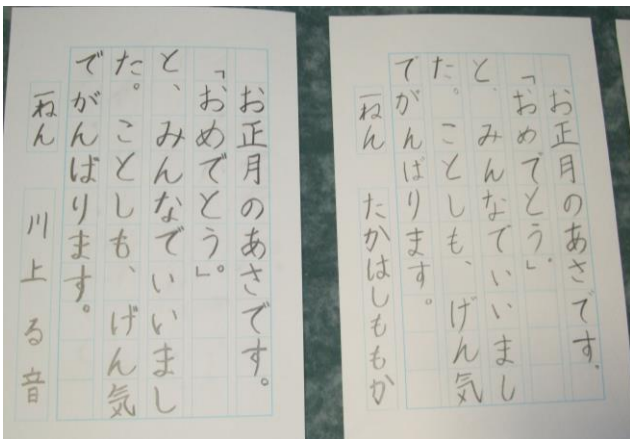 お正月のあさです。
「おめでとう」。
と、みんなでいいまし
た。ことしも、げん気
でがんばります。
一ねん たかはしももか
お正月のあさです。
「おめでとう」。
と、みんなでいいまし
た。ことしも、げん気
でがんばります。
一ねん 川上る音